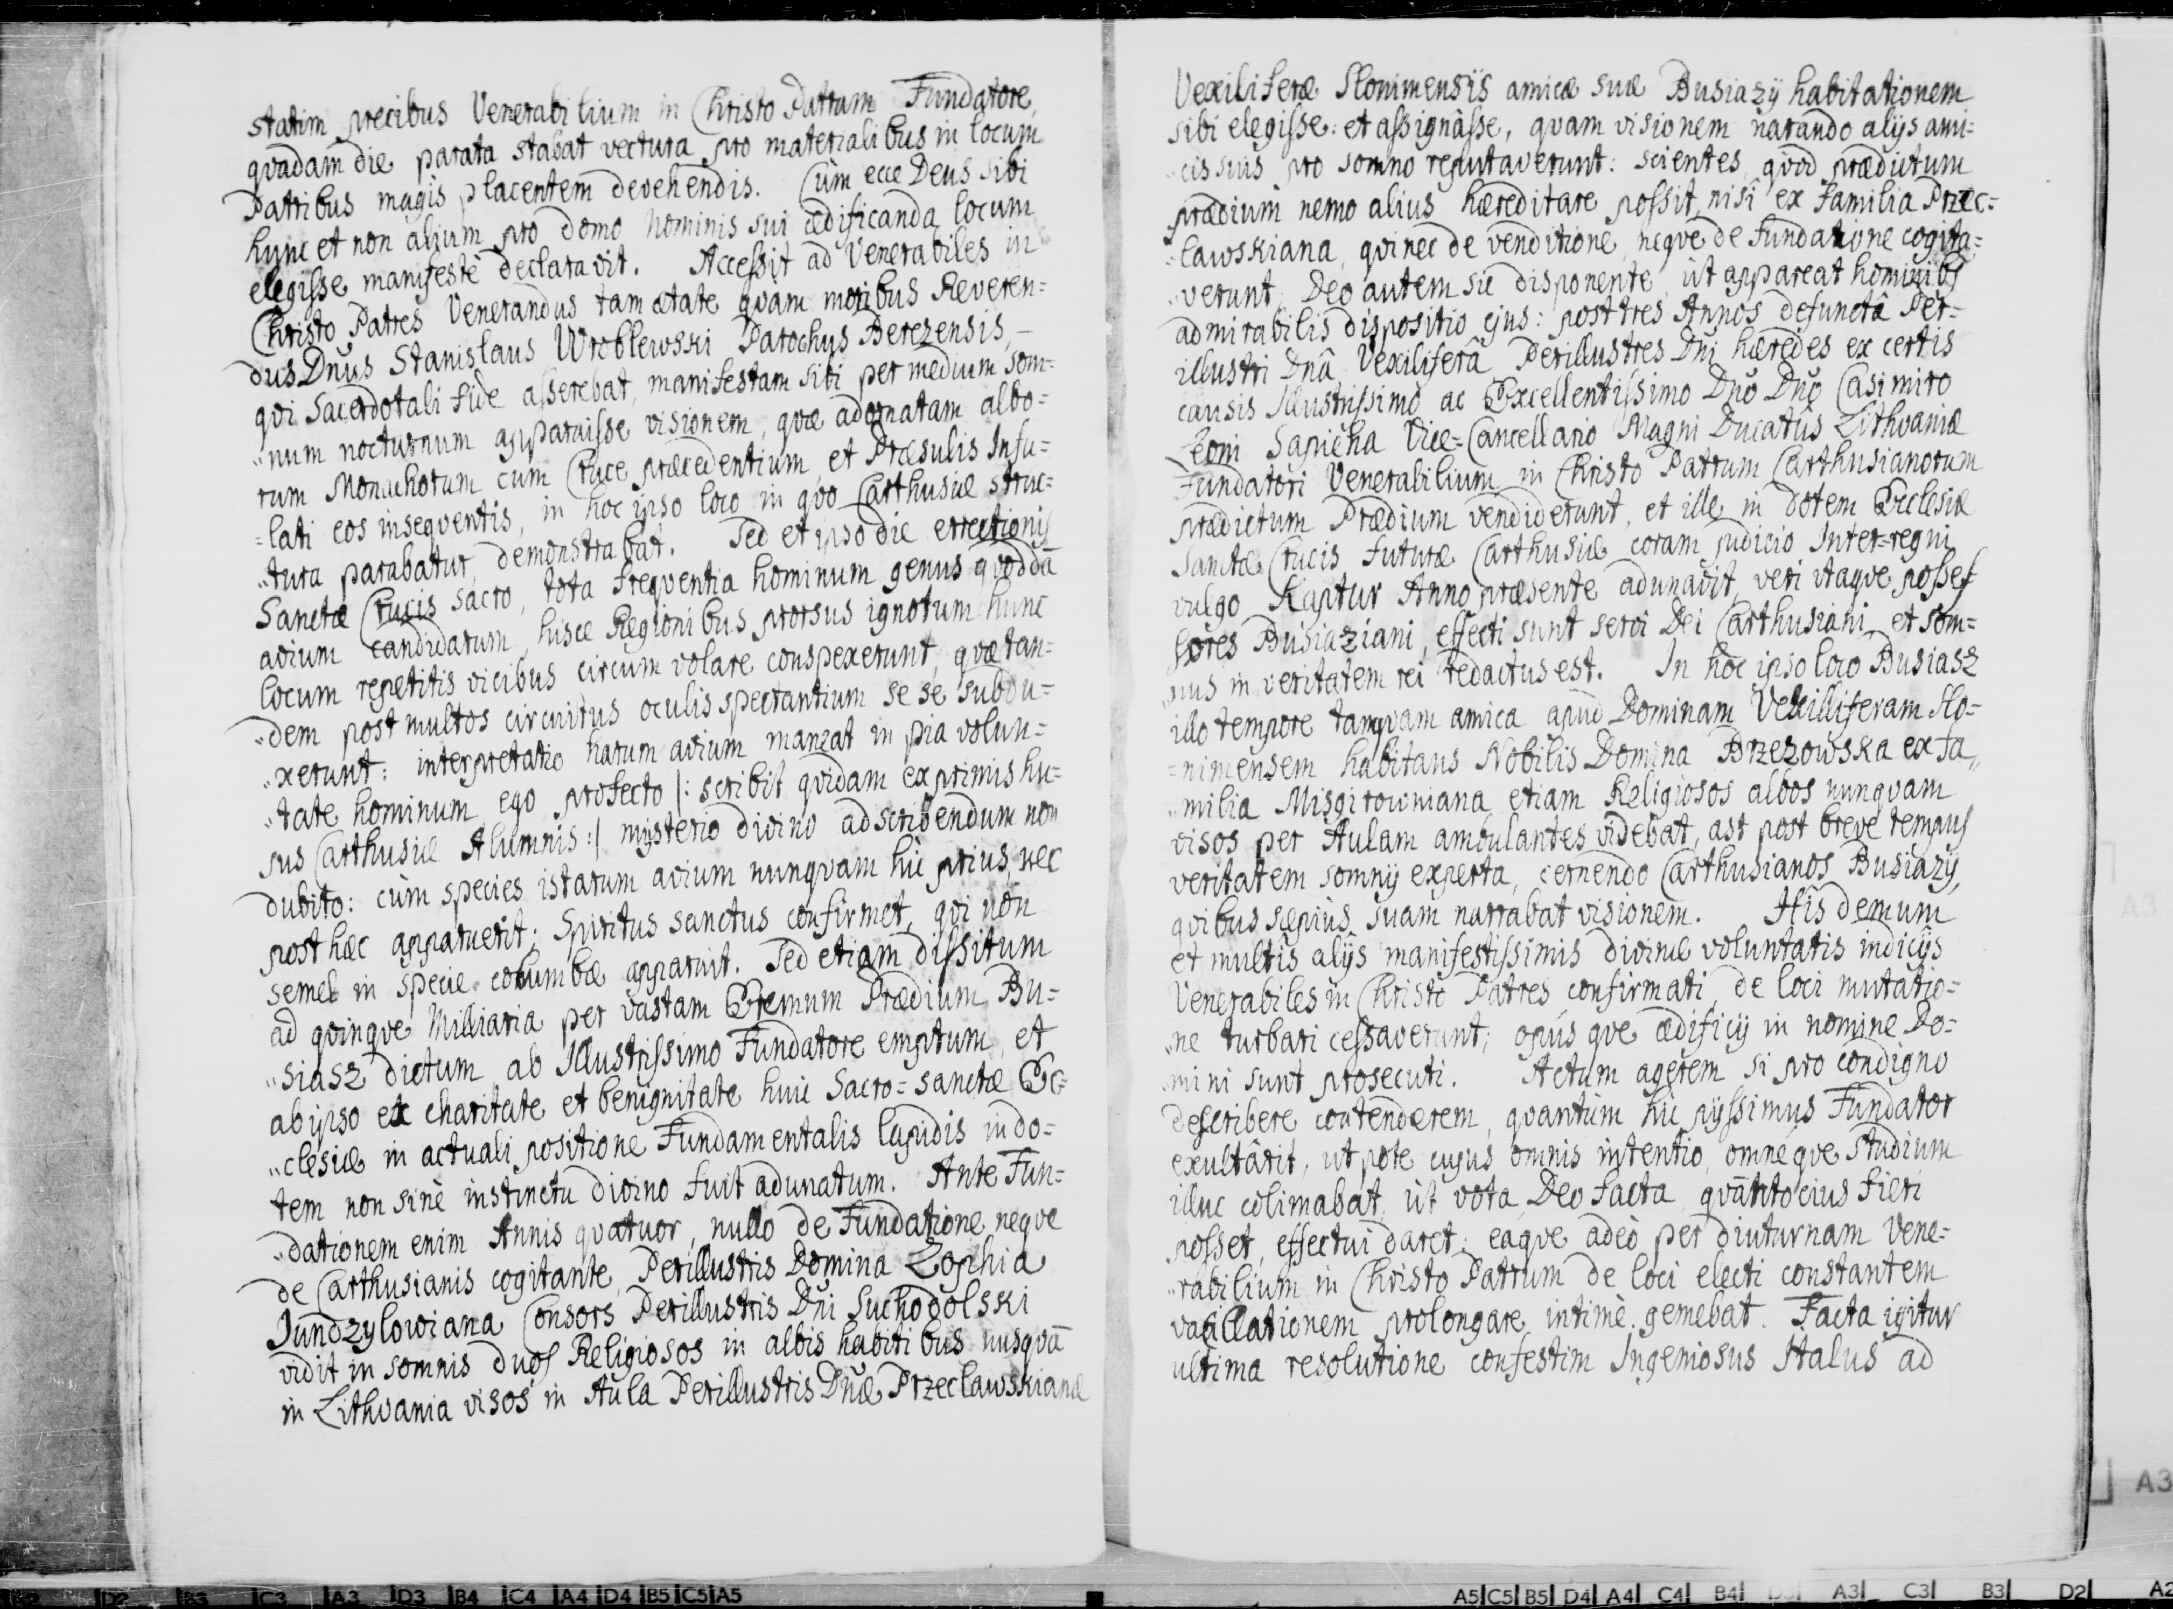 statim precibus Venerabilium in Christo Patrum Fundatore,
qvadam die parata stabat vectura pro materialibus in locum
Patribus magis placentem devehendis. Cùm ecce Deus sibi
hunc et non alium pro domo Nominis sui ædificanda locum
elegisse manifestè declaravit. Accessit ad Venerabiles in
Christo Patres Venerandus tam ætate qvam moribus Reveren=
dus Dnus Stanislaus Wroblewski Parochus Berezensis,
qvi Sacerdotali fide asserebat, manifestam sibi per medium som=
„num nocturnum apparuisse visionem, qvæ adornatam albo=
rum Monachorum cum Cruce præcedentium et Præsulis Infu=
=lati eos inseqventis, in hoc ipso loco in qvo Carthusiæ struc=
„tura parabatur, demonstrabat. Sed et ipso die errectionis
Sanctæ Crucis sacro, tota freqventia hominum genus qvoddā
avium candidarum, hisce Regionibus prorsus ignotum hunc
locum repetitis vicibus circum volare conspexerunt, qvæ tan=
„dem post multos circuitus oculis spectantium se se subdu=
„xerunt: interpretatio harum avium maneat in pia volun=
„tate hominum, ego profecto |: scribit qvidam ex primis hu=
jus Carthusiæ Alumnis :| mysterio divino adscribendum non
dubito: cùm species istarum avium nunqvam hìc prius, nec
post hæc apparuerit; Spiritus sanctus confirmet, qvi non
semel in specie columbæ apparuit. Sed etiam dissitum
ad qvinqve Milliaria per vastam Eremum Prædium Bu=
„siasz dictum ab Illustrissimo Fundatore emptum, et
ab ipso ex charitate et benignitate huic Sacro=sanctæ Ec=
„clesiæ in actuali positione Fundamentalis lapidis in do=
tem non sine instinctu divino fuit adunatum. Ante Fun=
„dationem enim Annis qvatuor, nullo de Fundatione neqve
de Carthusianis cogitante, Perillustris Domina Zophia
Jundzylowiana Consors Perillustris Dni Suchodolski
vidit in somnis duos Religiosos in albis habitibus nusqvā
in Lithvania visos in Aula Perillustris Dnæ Przeclawskianæ
Vexiliferæ Slonimensis amicæ suæ Busiazÿ habitationem
sibi elegisse: et assignâsse, qvam visionem narando alijs ami=
„cis suis pro somno reputaverunt: scientes qvod prædictum
prædium nemo alius hæreditare possit, nisi ex familia Przec=
=lawskiana, qvi nec de venditione, neqve de fundatione cogita=
„verunt. Deo autem sic disponente, ut appareat hominibs
admirabilis dispositio ejus: post tres Annos defunctâ Per=
illustri Dnâ Vexiliferâ Perillustres Dni hæredes ex certis
causis Illustrissimo ac Excellentissimo Dno Dno Casimiro
Leoni Sapieha Vice=Cancellario Magni Ducatus Lithvaniæ
Fundatori Venerabilium in Christo Patrum Carthusianorum
prædictum Prædium vendiderunt, et ille in dotem Ecclesiæ
Sanctæ Crucis futuræ Carthusiæ coram judicio Inter=regni
vulgo Kaptur Anno præsente adunavit, veri itaqve posses
sores Busiaziani, effecti sunt servi Dei Carthusiani, et som=
„nus in veritatem rei redactus est. In hoc ipso loco Busiasz
illo tempore tamqvam amica apud Dominam Vexilliferam Slo=
=nimensem habitans Nobilis Domina Brzezowska ex fa„
„milia Misgirowniana, etiam Religiosos albos nunqvam
visos per Aulam ambulantes videbat, ast post breve tempus
veritatem somnÿ experta, cernendo Carthusianos Busiazÿ,
qvibus sæpius suam narrabat visionem. His demum
et multis alijs manifestissimis divinæ voluntatis indicijs
Venerabiles in Christo Patres confirmati, de loci mutatio=
„ne turbari cessaverunt; opus qve ædificij in nomine Do=
mini sunt prosecuti. Actum agerem si pro condigno
describere contenderem, qvantùm hìc pijssimus Fundator
exultârit, ut pote cujus omnis intentio, omneqve studium
illuc colimabat, ut vota Deo facta qvantocius fieri
posset, effectui daret: eaqve adeò per diuturnam Vene=
„rabilium in Christo Patrum de loci electi constantem
vacillationem prolongare intimè gemebat. Facta igitur
ultima resolutione confestim Ingeniosus Italus ad